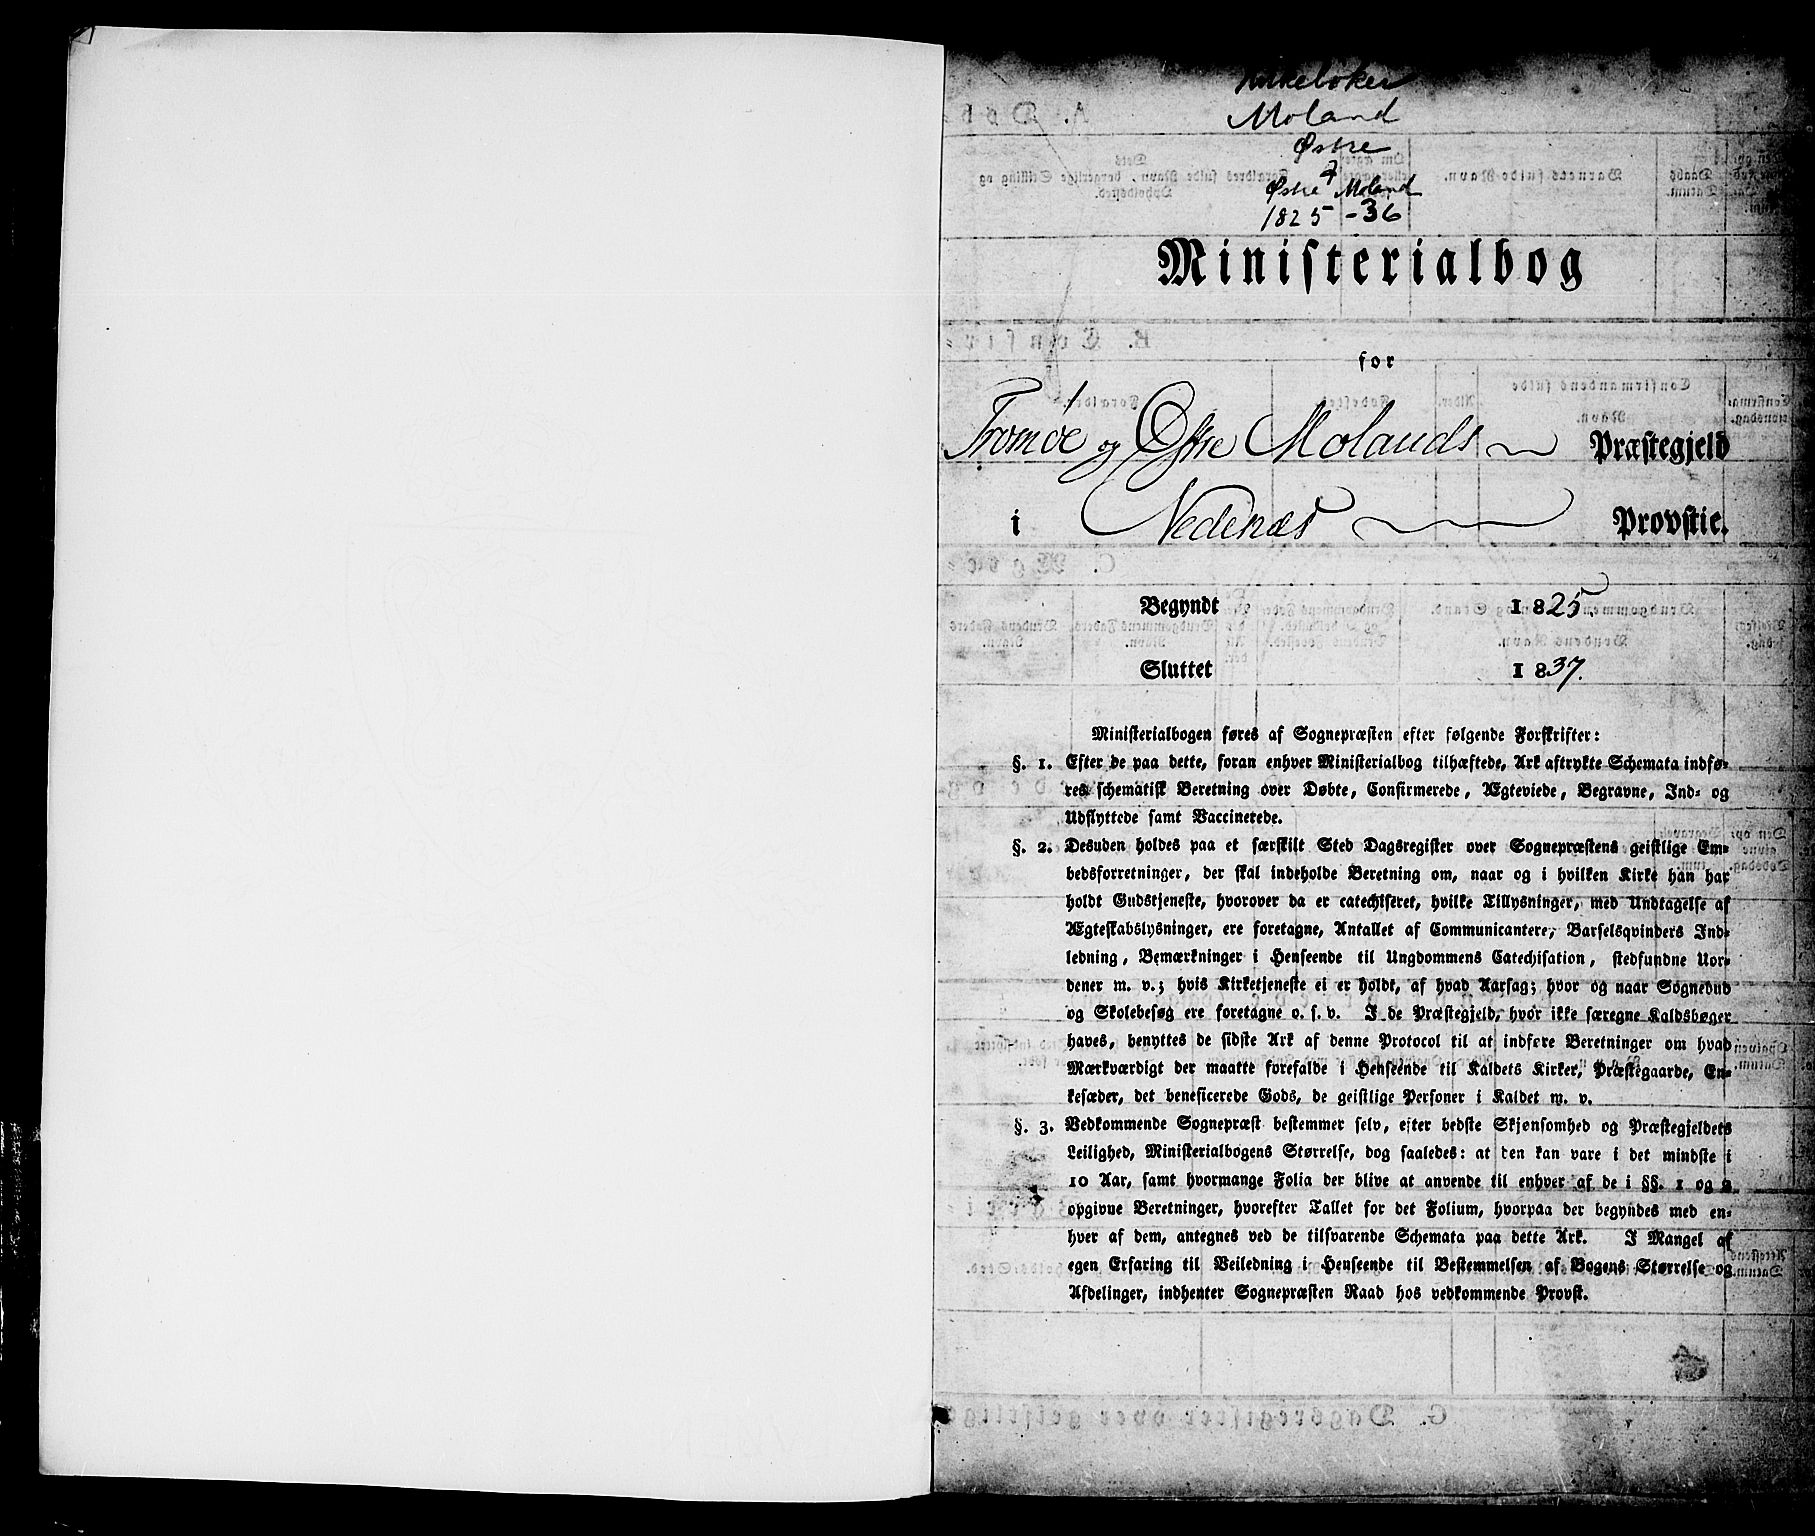 Kirkebøker
Moland
Østre
Østre Moland
1825-36
Ministerialbog
for
Tromøe og Østre Molands Præstegjeld
i Nedenæs Provstie.
Begyndt 1825.
Sluttet 1837.
Ministerialbogen føres af Sognepræsten efter følgende Forskrifter:
§. 1. Efter de paa dette, foran enhver Ministerialbog tilhæftede, Ark aftrykte Schemata indfø-
res schematisk Beretning over Døbte, Confirmerede, Ægteviede, Begravne, Ind- og
Udflyttede samt Vaccinerede.
§. 2. Desuden holdes paa et særskilt Sted Dagsregister over Sognepræstens geistlige Em-
bedsforretninger, der skal indeholde Beretning om, naar og i hvilken Kirke han har
holdt Gudstjeneste, hvorover da er catechiseret, hvilke Tillysninger, med Undtagelse af
Ægteskabslysninger, ere foretagne, Antallet af Communicantere, Barselqvinders Ind-
ledning, Bemærkninger i Henseende til Ungdommens Catechisation, stedfundne Uor-
dener m. v.; hvis Kirketjeneste ei er holdt, af hvad Aarsag; hvor og naar Sognebud
og Skolebesøg ere foretagne o. s. v. I de Præstegjeld, hvor ikke særegne Kaldsbøger
haves, benyttes de sidste Ark af denne Protocol til at indføre Beretninger om hvad
Mærkværdigt der maatte forefalde i Henseende til Kaldets Kirker, Præstegaarde, En-
kesæder, det beneficerede Gods, de geistlige Personer i Kaldet m. v.
§. 3. Vedkommende Sognepræst bestemmer selv, efter bedste Skjønsomhed og Præstegjeldets
Leilighed, Ministerialbogens Størrelse, dog saaledes: at den kan vare i det mindste i
10 Aar, samt hvormange Folia der blive at anvende til enhver af de i §§. 1 og 2
opgivne Beretninger, hvorefter Tallet for det Folium, hvorpaa der begyndes med en-
hver af dem, antegnes ved de tilsvarende Schemata paa dette Ark. I Mangel af
egen Erfaring til Veiledning i Henseende til Bestemmelsen af Bogens Størrelse og
Afdelinger, indhenter Sognepræsten Raad hos vedkommende Provst.